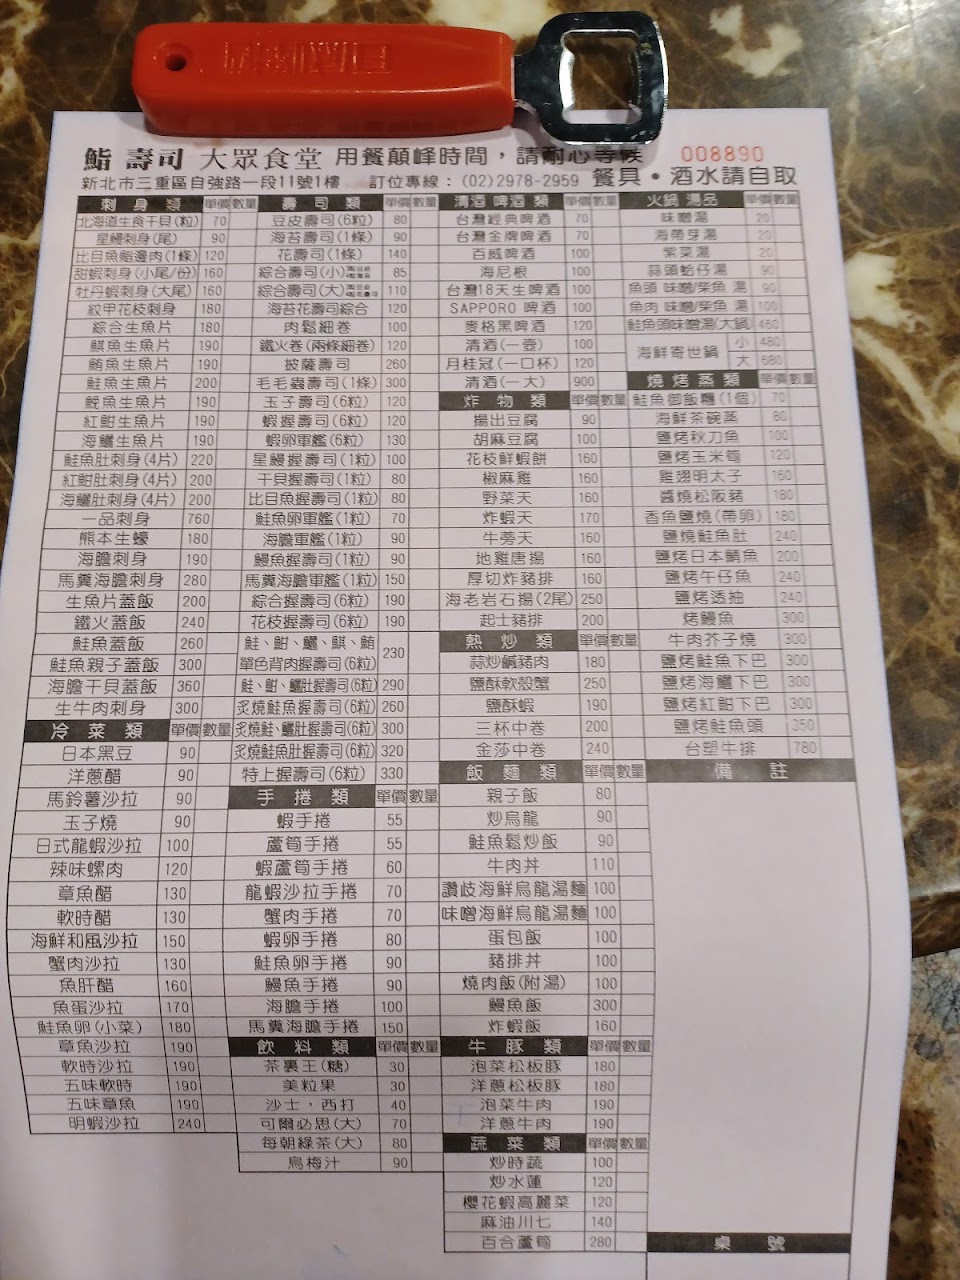 鮨 壽司 大眾食堂 用餐顛峰時間，請耐心等候 008890
新北市三重區自強路一段11號1樓 訂位專線：(02)2978-2959 餐具•酒水請自取
刺身類 單價 數量
北海道生食干貝(粒) 70
星鰻刺身(尾) 90
比目魚鮨邊肉(1條) 120
甜蝦刺身(小尾/份) 160
牡丹蝦刺身(大尾) 160
紋甲花枝刺身 180
綜合生魚片 180
鯕魚生魚片 190
鮪魚生魚片 190
鮭魚生魚片 200
鮸魚生魚片 190
紅魽生魚片 190
海鱺生魚片 190
鮭魚肚刺身(4片) 220
紅魽肚刺身(4片) 200
海鱺肚刺身(4片) 200
一品刺身 760
熊本生蠔 180
海膽刺身 190
馬糞海膽刺身 280
生魚片蓋飯 200
鐵火蓋飯 240
鮭魚蓋飯 260
鮭魚親子蓋飯 300
海膽干貝蓋飯 360
生牛肉刺身 300
冷菜類 單價 數量
日本黑豆 90
洋蔥醋 90
馬鈴薯沙拉 90
玉子燒 90
日式龍蝦沙拉 100
辣味螺肉 120
章魚醋 130
軟時醋 130
海鮮和風沙拉 150
蟹肉沙拉 130
魚肝醋 160
魚蛋沙拉 170
鮭魚卵(小菜) 180
章魚沙拉 190
軟時沙拉 190
五味軟時 190
五味章魚 190
明蝦沙拉 240
壽司類 單價 數量
豆皮壽司(6粒) 80
海苔壽司(1條) 90
花壽司(1條) 140
綜合壽司(小) 85
綜合壽司(大) 110
海苔花壽司綜合 120
肉鬆細卷 100
鐵火卷(兩條細卷) 120
披薩壽司 260
毛毛蟲壽司(1條) 300
玉子壽司(6粒) 120
蝦握壽司(6粒) 120
蝦卵軍艦(6粒) 130
星鰻握壽司(1粒) 100
干貝握壽司(1粒) 80
比目魚握壽司(1粒) 80
鮭魚卵軍艦(1粒) 70
海膽軍艦(1粒) 90
鰻魚握壽司(1粒) 90
馬糞海膽軍艦(1粒) 150
綜合握壽司(6粒) 190
花枝握壽司(6粒) 190
鮭、魽、鱺、鯕、鮪
單色背肉握壽司(6粒) 230
鮭、魽、鱺肚握壽司(6粒) 290
炙燒鮭魚握壽司(6粒) 260
炙燒鮭、鱺握壽司(6粒) 300
炙燒鮭魚肚握壽司(6粒) 320
特上握壽司(6粒) 330
手捲類 單價 數量
蝦手捲 55
蘆筍手捲 55
蝦蘆筍手捲 60
龍蝦沙拉手捲 70
蟹肉手捲 70
蝦卵手捲 80
鮭魚卵手捲 90
鰻魚手捲 90
海膽手捲 100
馬糞海膽手捲 150
飲料類 單價 數量
茶裏王(糖) 30
美粒果 30
沙士，西打 40
可爾必思(大) 70
每朝綠茶(大) 80
烏梅汁 90
清酒 啤酒類 單價 數量
台灣經典啤酒 70
台灣金牌啤酒 70
百威啤酒 100
海尼根 100
台灣18天生啤酒 100
SAPPORO 啤酒 100
麥格黑啤酒 120
清酒(一壺) 100
月桂冠(一口杯) 120
清酒(一大) 900
炸物類 單價 數量
揚出豆腐 90
胡麻豆腐 100
花枝鮮蝦餅 160
椒麻雞 160
野菜天 160
炸蝦天 170
牛蒡天 160
地雞唐揚 160
厚切炸豬排 160
海老岩石揚(2尾) 250
起士豬排 200
熱炒類 單價 數量
蒜炒鹹豬肉 180
鹽酥軟殼蟹 250
鹽酥蝦 190
三杯中卷 200
金莎中卷 240
飯麵類 單價 數量
親子飯 80
炒烏龍 90
鮭魚鬆炒飯 90
牛肉丼 110
讚岐海鮮烏龍湯麵 100
味噌海鮮烏龍湯麵 100
蛋包飯 100
豬排丼 100
燒肉飯(附湯) 100
鰻魚飯 300
炸蝦飯 160
牛豚類 單價 數量
泡菜松板豚 180
洋蔥松板豚 180
泡菜牛肉 190
洋蔥牛肉 190
蔬菜類 單價 數量
炒時蔬 100
炒水蓮 120
櫻花蝦高麗菜 120
麻油川七 140
百合蘆筍 280
火鍋 湯品 單價 數量
味噌湯 20
海帶芽湯 20
紫菜湯 20
蒜頭蛤仔湯 90
魚頭 味噌/柴魚 湯 90
魚肉 味噌/柴魚 湯 100
鮭魚頭味噌湯(大鍋) 460
海鮮寄世鍋 小 480
大 680
燒烤蒸類 單價 數量
鮭魚御飯糰(1個) 70
海鮮茶碗蒸 80
鹽烤秋刀魚 100
鹽烤玉米筍 120
雞翅明太子 160
醬燒松阪豬 180
香魚鹽燒(帶卵) 180
鹽燒鮭魚肚 240
鹽烤日本鯖魚 200
鹽烤午仔魚 240
鹽烤透抽 240
烤鰻魚 300
牛肉芥子燒 300
鹽烤鮭魚下巴 300
鹽烤海鱺下巴 300
鹽烤紅魽下巴 300
鹽烤鮭魚頭 350
台塑牛排 780
備註
桌號